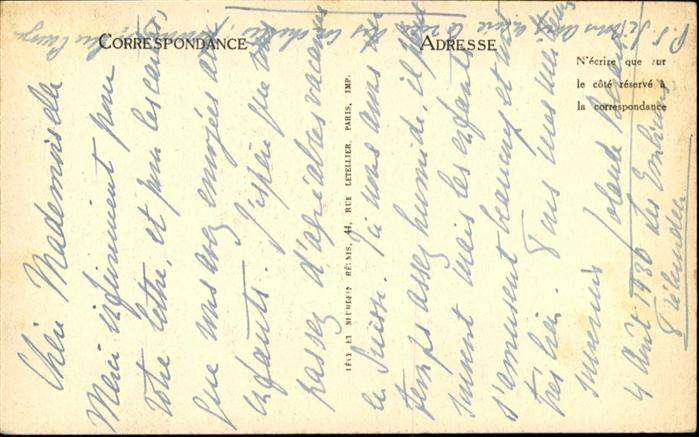 CORRESPONDANCE
ADRESSE
N'écrire que sur
le côté réservé à
la correspondance
LÉVY ET NEURDEIN RÉUNIS, 44, RUE LETELLIER, PARIS, IMP.
Chère Mademoiselle
Merci infiniment pour
votre lettre, et pour les cartes
que vous avez envoyées aux
enfants. J'espère que vous
passez d'agréables vacances
en Suisse. Ici nous avons un
temps assez humide, il pleut
souvent mais les enfants
s'amusent beaucoup et vont
très bien. Tous mes meilleurs
souvenirs
4 Août 1936 les
P.S. Si vous